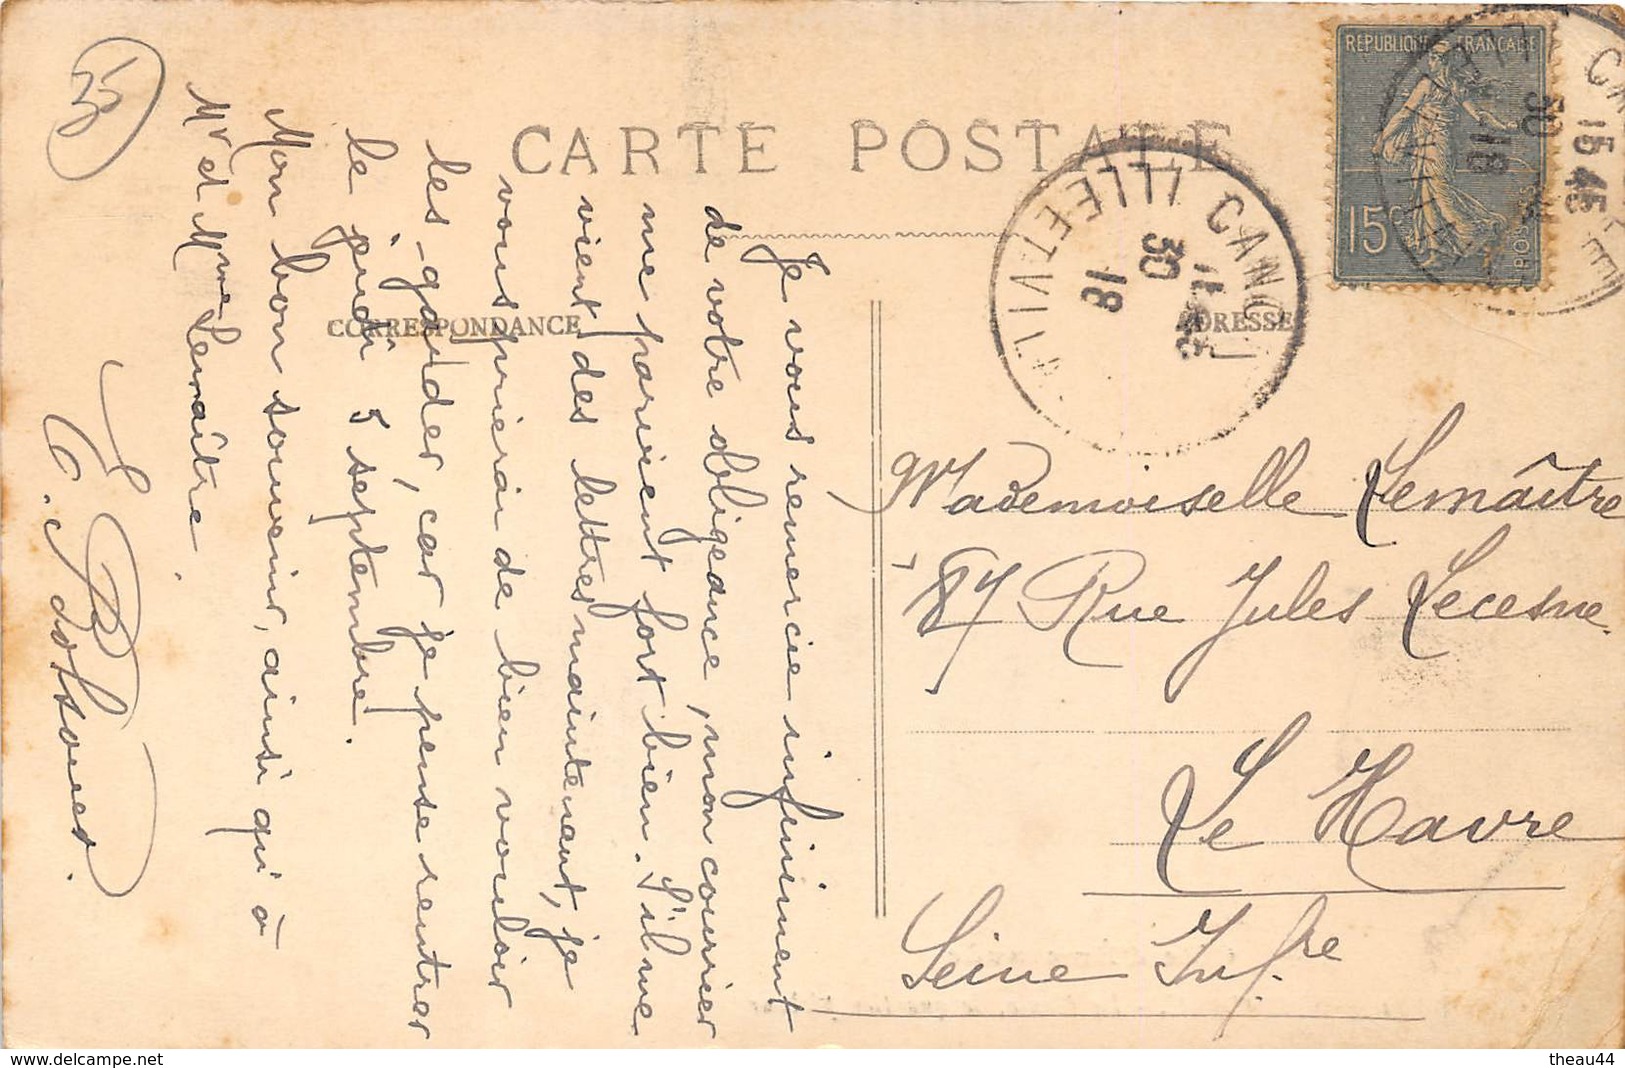 CARTE POSTALE
CORRESPONDANCE
ADRESSE
RÉPUBLIQUE FRANÇAISE
15c
CANC
ILLE ET VILA
30
18
15 45
30
18
35
Je vous remercie infiniment
de votre obligeance, mon courrier
me parvient fort bien. S'il me
vient des lettres maintenant, je
vous prierai de bien vouloir
les garder, car je pense rentrer
le jeudi 5 septembre.
Mon bon souvenir, ainsi qu'à
Mr et Mme Lemaître.
E.
Mademoiselle Lemaître
87 Rue Jules Lecesne.
Le Havre
Seine Infre
www.delcampe.net
theau44